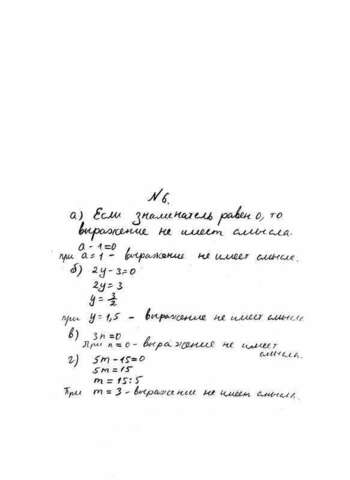 № 6.
а) Если знаменатель равен 0, то
выражение не имеет смысла.
a - 1 = 0
при a = 1 - выражение не имеет смысле.
б) 2y - 3 = 0
2y = 3
y = 3/2
при y = 1,5 - выражение не имеет смысле
в) 3n = 0
При n = 0 - выражение не имеет
смысла.
г) 5m - 15 = 0
5m = 15
m = 15 : 5
При m = 3 - выражение не имеет смысла.